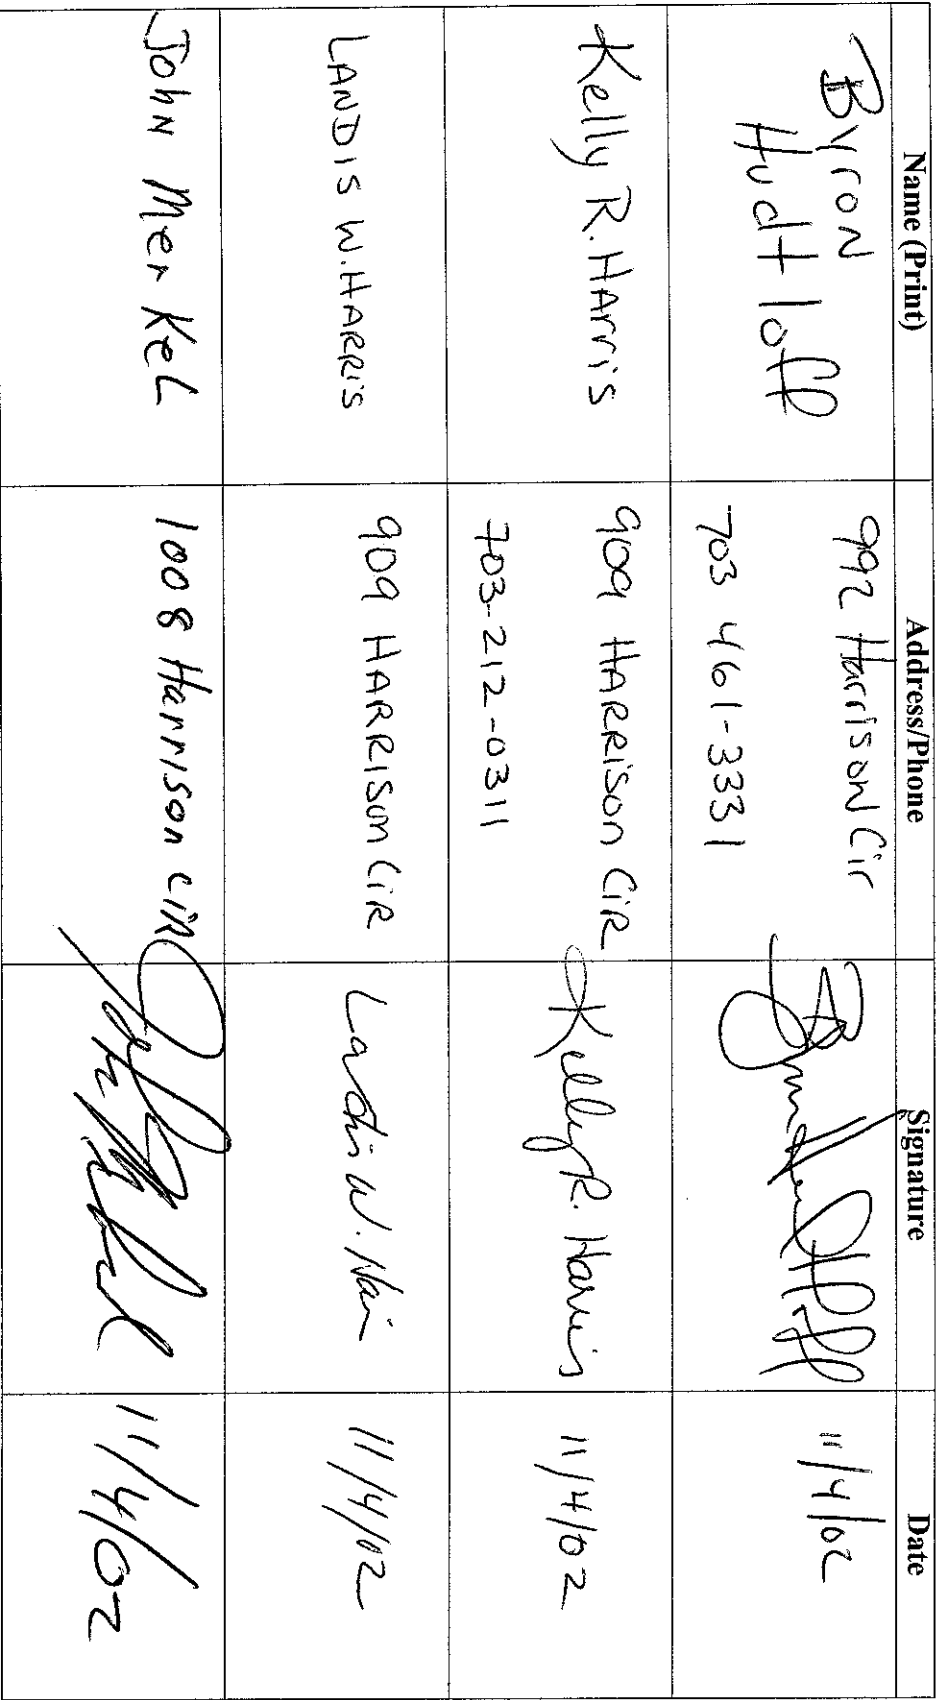 Name (Print) Address/Phone Signature Date
Byron
Hudtloff
992 Harrison Cir
703 461-3331
11/4/02
Kelly R. Harris
909 HARRISON CIR
703-212-0311
Kelly R. Harris
11/4/02
LANDIS W. HARRIS
909 HARRISON CIR
Landis W. Harris
11/4/02
John Merkel
1008 Harrison CIR
John Merkel
11/4/02